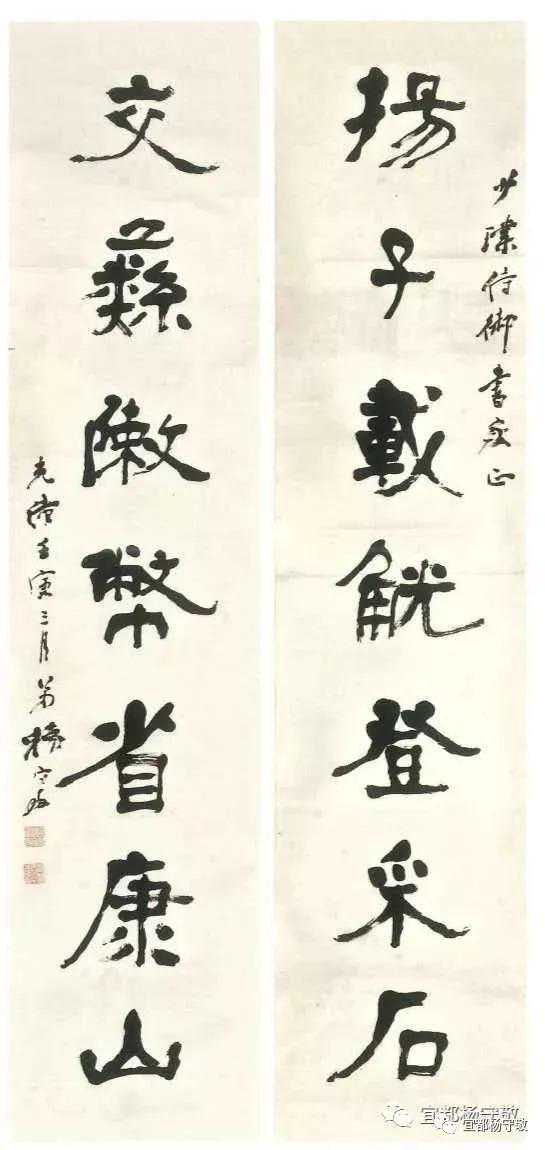 少璞侍御書家正
揚子載觥登采石
交彝敶幣省康山
光緒壬寅三月弟楊守敬
宜都杨守敬
宜都杨守敬